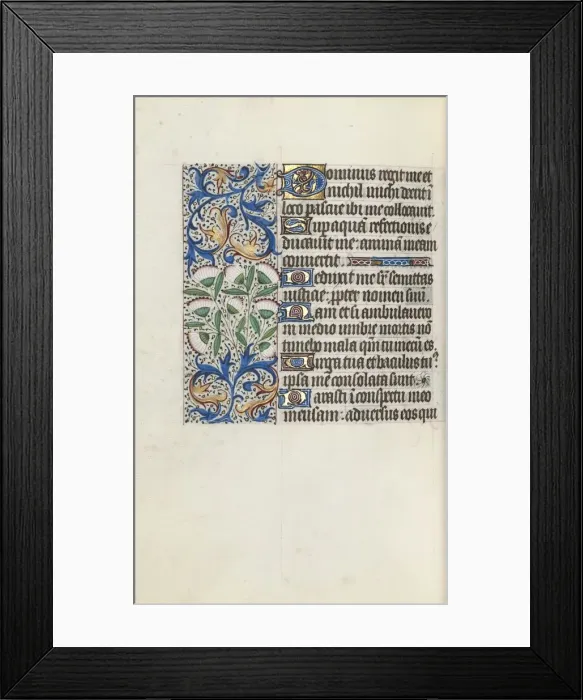 Dominus regit me et
nichil michi deerit i
loco pascue ibi me collocauit.
Sup aquā refectionis e
ducauit me: animā meam
conuertit.
Deduxit me sr̄ semitas
iusticie: ppter nomen suū.
Nam et si ambulauero
in medio umbre mortis nō
timebo mala qm̄ tu mecū es.
Uirga tua et baculus tu9
ipsa me consolata sunt.
Parasti ī conspectu meo
mensam: aduersus eos qui